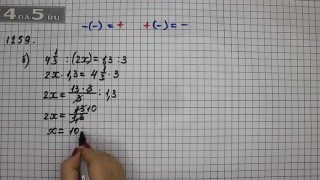 4ДА5.RU
-(-) = + +(-) = -
1259.
б) 4 1/3 : (2x) = 1,3 : 3
2x · 1,3 = 4 1/3 · 3
2x = 13 · 3/3 : 1,3
2x = 13 10/1,3
x = 10